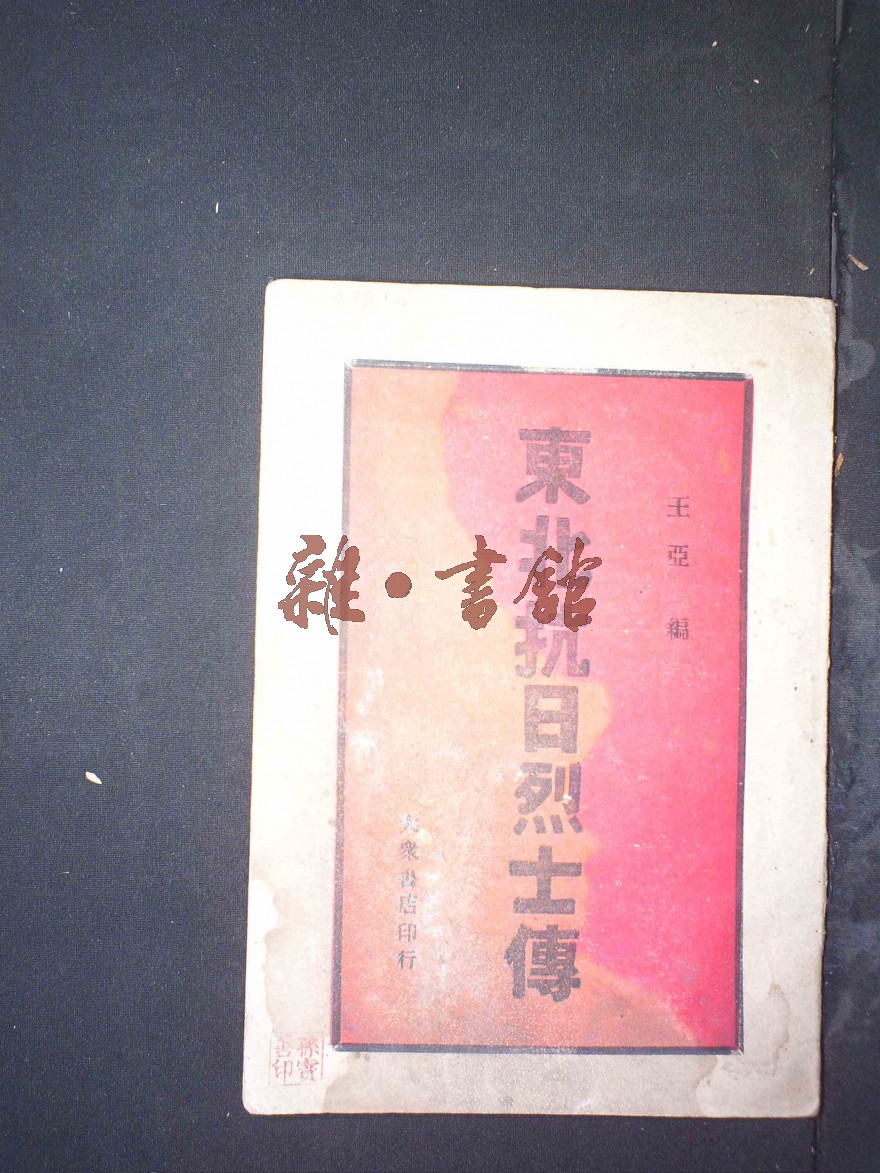 王亞編
東北抗日烈士傳
大衆書店印行
雜·書館
孫寶
善印